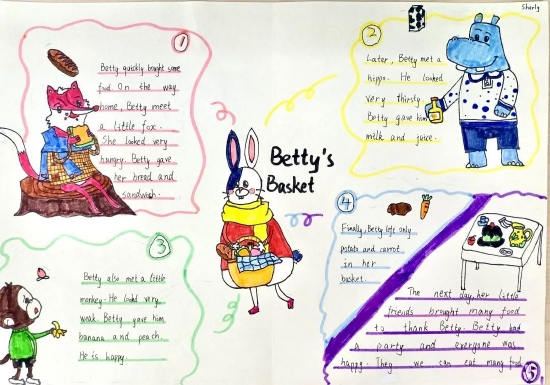 Sherly
Betty's
Basket
1
Betty quickly bought some
food On the way
home, Betty meet
a little fox.
She looked very
hungry. Betty gave
her bread and
sandwich.
2
Later, Betty met a
hippo. He looked
very thirsty.
Betty gave him
milk and juice.
3
Betty also met a little
monkey. He lookd very
weak. Betty gave him
banana and peach.
He is happy.
4
Finally, Betty left only
potato and carrot
in her
basket.
The next day, her little
friends brought many food
to thank Betty. Betty had
a party and everyone was
happy. They we can eat many food.
5